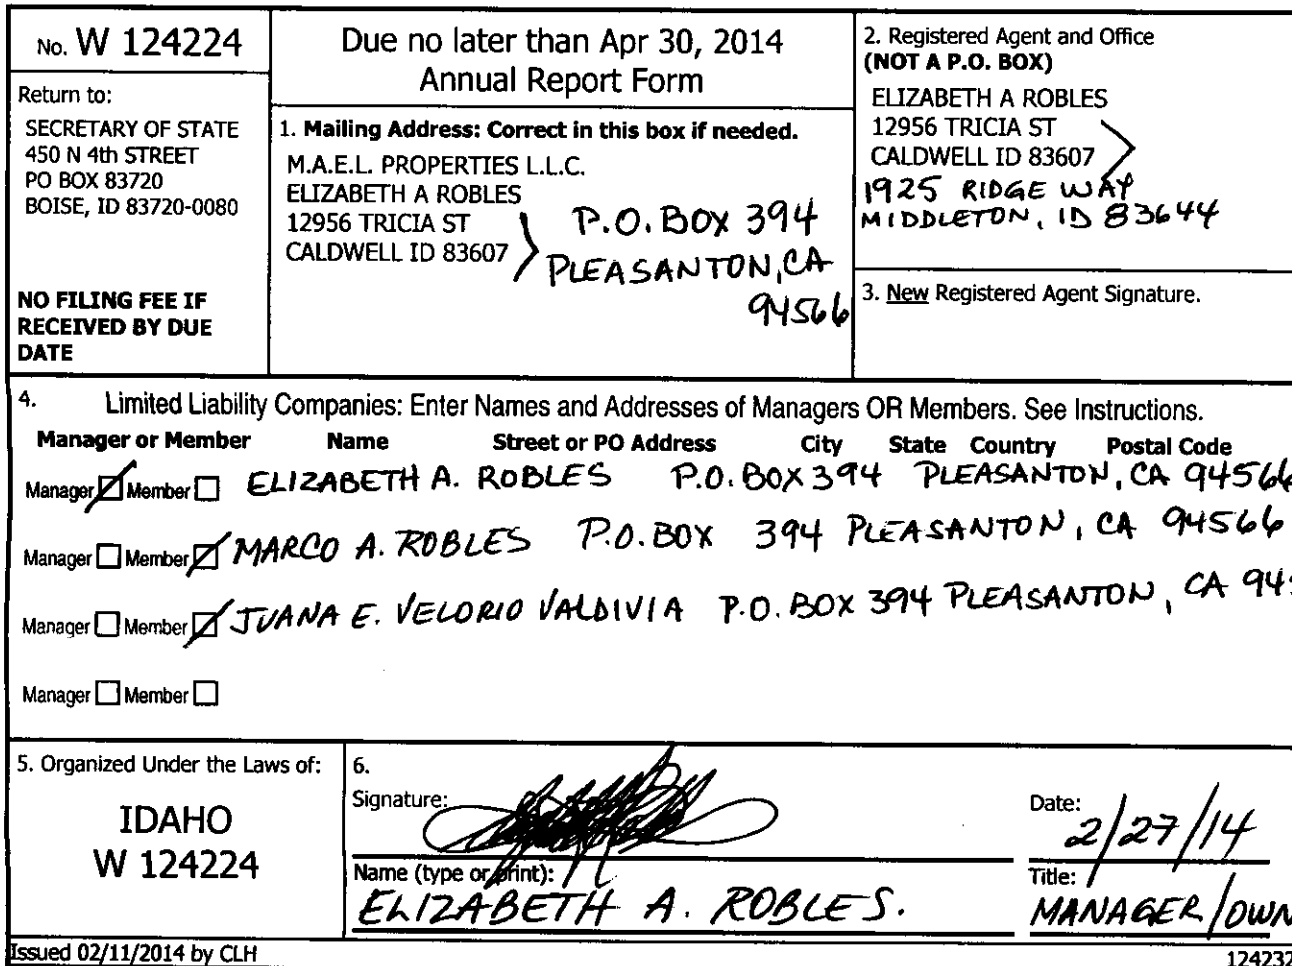 No. W 124224
Return to:
SECRETARY OF STATE
450 N 4th STREET
PO BOX 83720
BOISE, ID 83720-0080
NO FILING FEE IF
RECEIVED BY DUE
DATE
Due no later than Apr 30, 2014
Annual Report Form
1. Mailing Address: Correct in this box if needed.
M.A.E.L. PROPERTIES L.L.C.
ELIZABETH A ROBLES
12956 TRICIA ST
CALDWELL ID 83607
P.O. BOX 394
PLEASANTON, CA
94566
2. Registered Agent and Office
(NOT A P.O. BOX)
ELIZABETH A ROBLES
12956 TRICIA ST
CALDWELL ID 83607
1925 RIDGE WAY
MIDDLETON, ID 83644
3. New Registered Agent Signature.
4. Limited Liability Companies: Enter Names and Addresses of Managers OR Members. See Instructions.
Manager or Member Name Street or PO Address City State Country Postal Code
Manager Member ELIZABETH A. ROBLES P.O. BOX 394 PLEASANTON, CA 94566
Manager Member MARCO A. ROBLES P.O. BOX 394 PLEASANTON, CA 94566
Manager Member JUANA E. VELORIO VALDIVIA P.O. BOX 394 PLEASANTON, CA 945
Manager Member
5. Organized Under the Laws of:
IDAHO
W 124224
6.
Signature:
Date: 2/27/14
Name (type or print):
ELIZABETH A. ROBLES.
Title:
MANAGER/OWN
Issued 02/11/2014 by CLH
124232